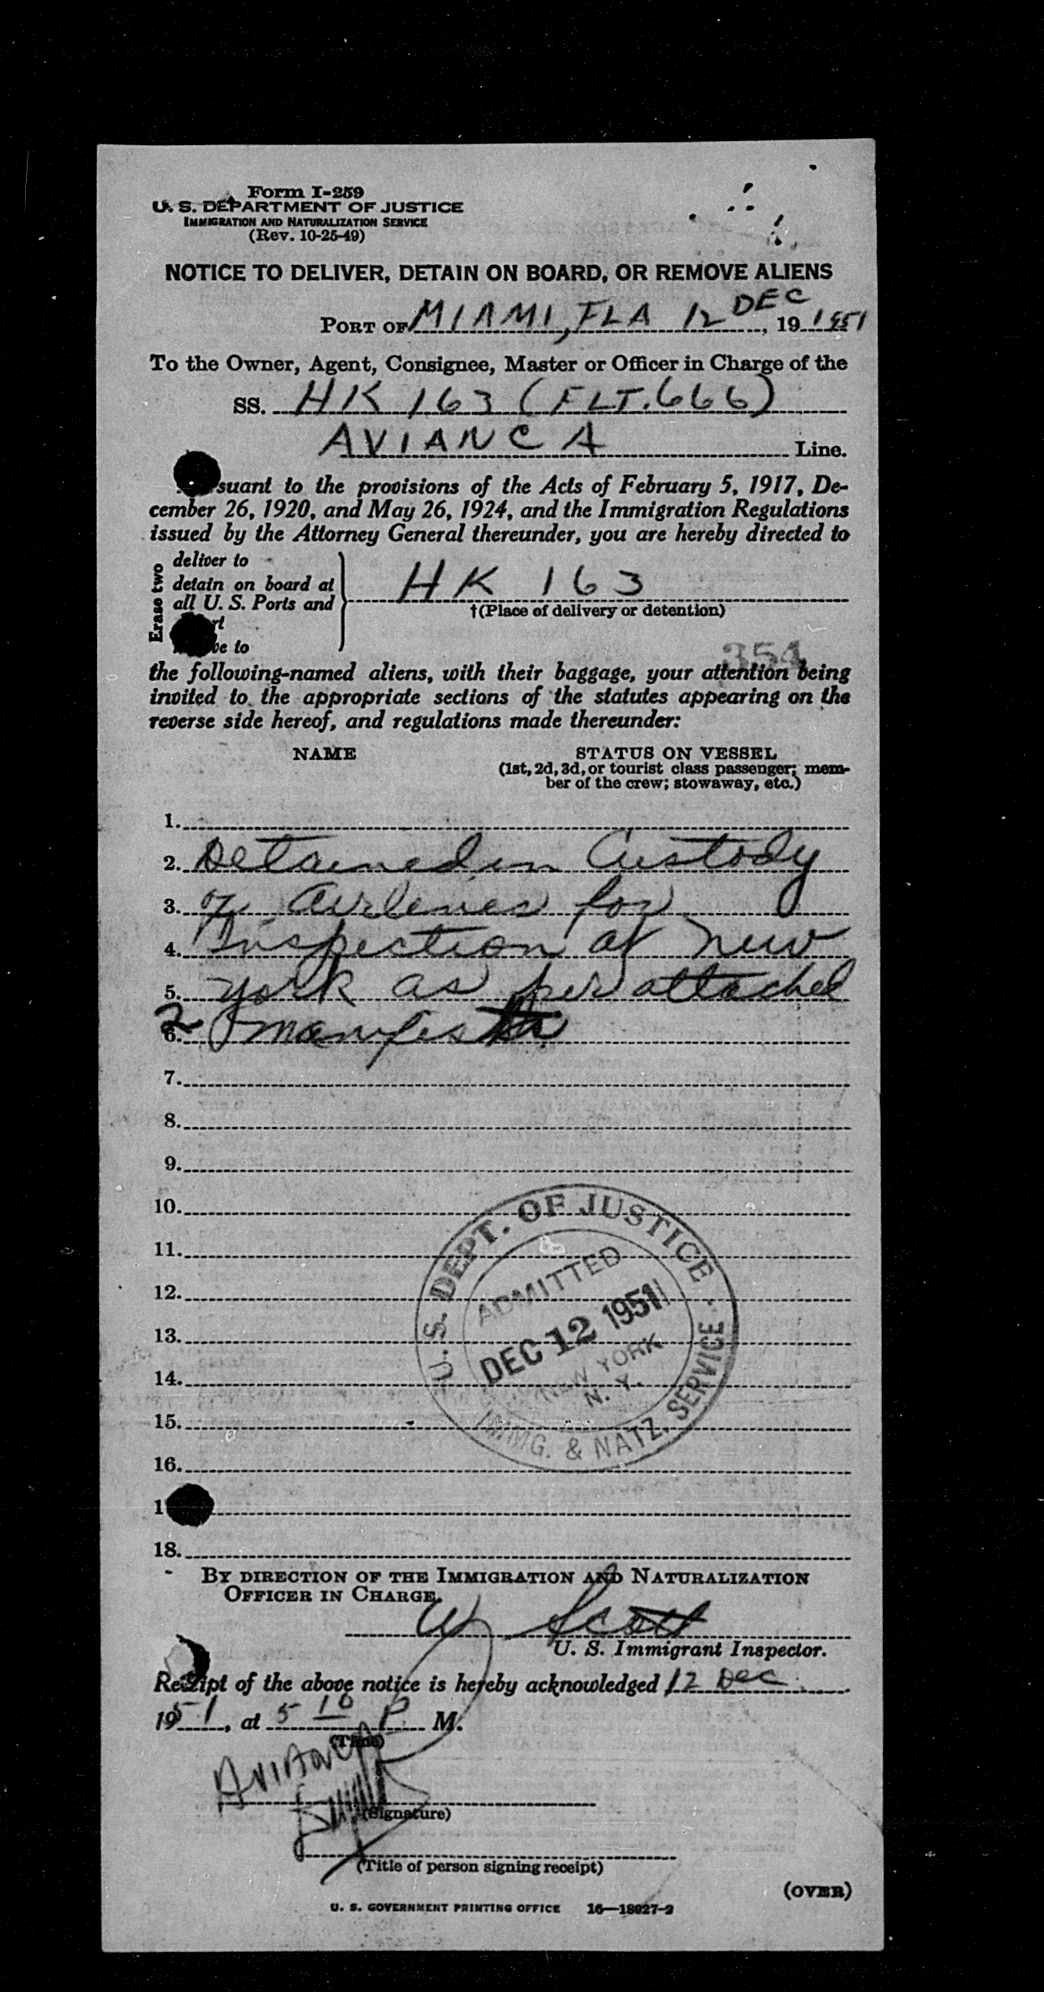 Form I-259
U. S. DEPARTMENT OF JUSTICE
IMMIGRATION AND NATURALIZATION SERVICE
(Rev. 10-25-49)
NOTICE TO DELIVER, DETAIN ON BOARD, OR REMOVE ALIENS
PORT OF MIAMI, FLA 12 DEC, 19 1951
To the Owner, Agent, Consignee, Master or Officer in Charge of the
SS. HK 163 (FLT. 666)
AVIANCA Line.
suant to the provisions of the Acts of February 5, 1917, De-
cember 26, 1920, and May 26, 1924, and the Immigration Regulations
issued by the Attorney General thereunder, you are hereby directed to
Erase two
deliver to
detain on board at
all U. S. Ports and
rt
ve to
HK 163
†(Place of delivery or detention)
354
the following-named aliens, with their baggage, your attention being
invited to the appropriate sections of the statutes appearing on the
reverse side hereof, and regulations made thereunder:
NAME STATUS ON VESSEL
(1st, 2d, 3d, or tourist class passenger; mem-
ber of the crew; stowaway, etc.)
1.
2. Detained in Custody
3. of Airlines for
4. Inspection at New
5. York as per attached
2
6. manifest
7.
8.
9.
10.
11.
12.
13.
14.
15.
16.
1
18.
U. S. DEPT. OF JUSTICE
ADMITTED
DEC 12 1951
NEW YORK
N. Y.
IMMG. & NATZ. SERVICE
BY DIRECTION OF THE IMMIGRATION AND NATURALIZATION
OFFICER IN CHARGE.
W Scott
U. S. Immigrant Inspector.
Receipt of the above notice is hereby acknowledged 12 Dec
1951, at 5 10 P. M.
(Time)
AVIANCA
(Signature)
(Title of person signing receipt)
(OVER)
U. S. GOVERNMENT PRINTING OFFICE 16—18027-2